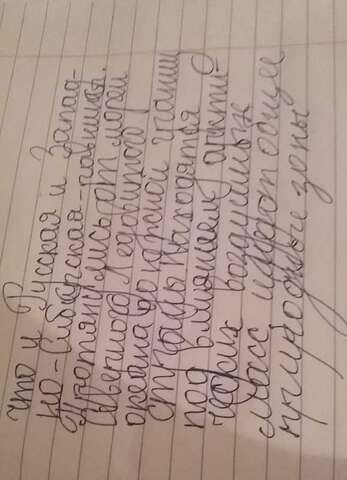 что и Русская и Запад-
но-Сибирская-равнина.
Протянулись от морей
Северного Ледовитого
океана до южной границы
страны находятся
под влиянием аркти-
ческих воздушных
масс имеют общие
природные зоны